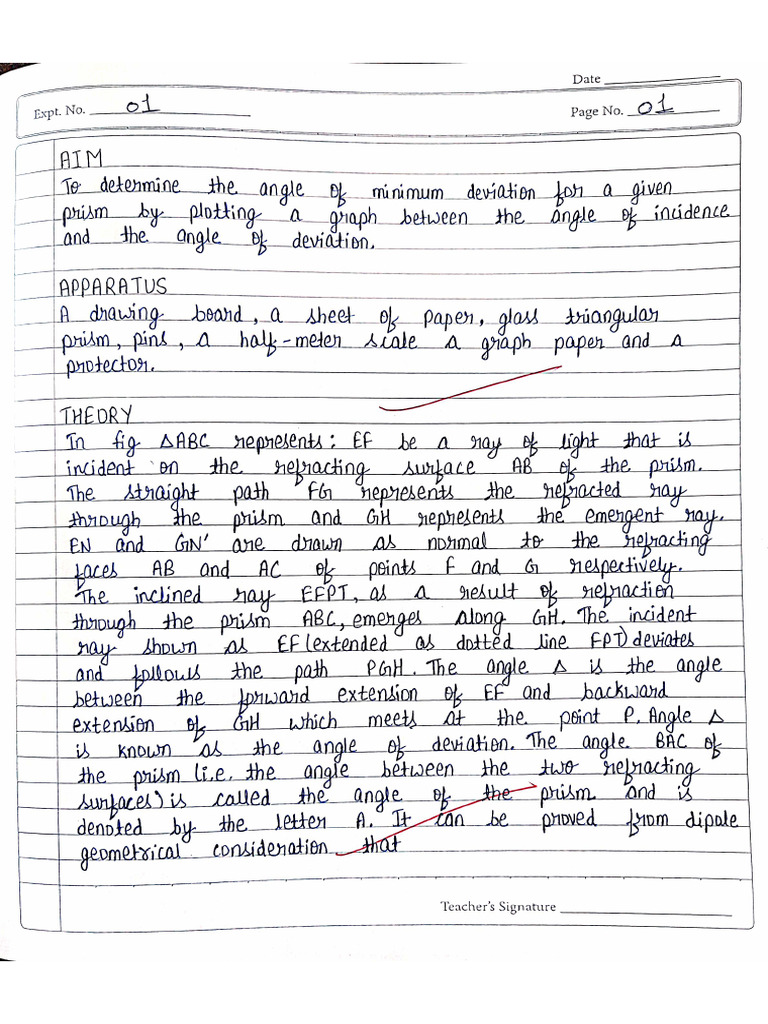 Date
Expt. No. 01
Page No. 01
AIM
To determine the angle of minimum deviation for a given
prism by plotting a graph between the angle of incidence
and the angle of deviation.
APPARATUS
A drawing board, a sheet of paper, glass triangular
prism, pins, a half-meter scale a graph paper and a
protector.
THEORY
In fig ΔABC represents: EF be a ray of light that is
incident on the refracting surface AB of the prism.
The straight path FG represents the refracted ray
through the prism and GH represents the emergent ray.
EN and GN' are drawn as normal to the refracting
faces AB and AC of points F and G respectively.
The inclined ray EFPT, as a result of refraction
through the prism ABC, emerges along GH. The incident
ray shown as EF (extended as dotted line FPT) deviates
and follows the path PGH. The angle Δ is the angle
between the forward extension of EF and backward
extension of GH which meets at the point P. Angle Δ
is known as the angle of deviation. The angle BAC of
the prism (i.e. the angle between the two refracting
surfaces) is called the angle of the prism and is
denoted by the letter A. It can be proved from dipole
geometrical consideration that
Teacher's Signature